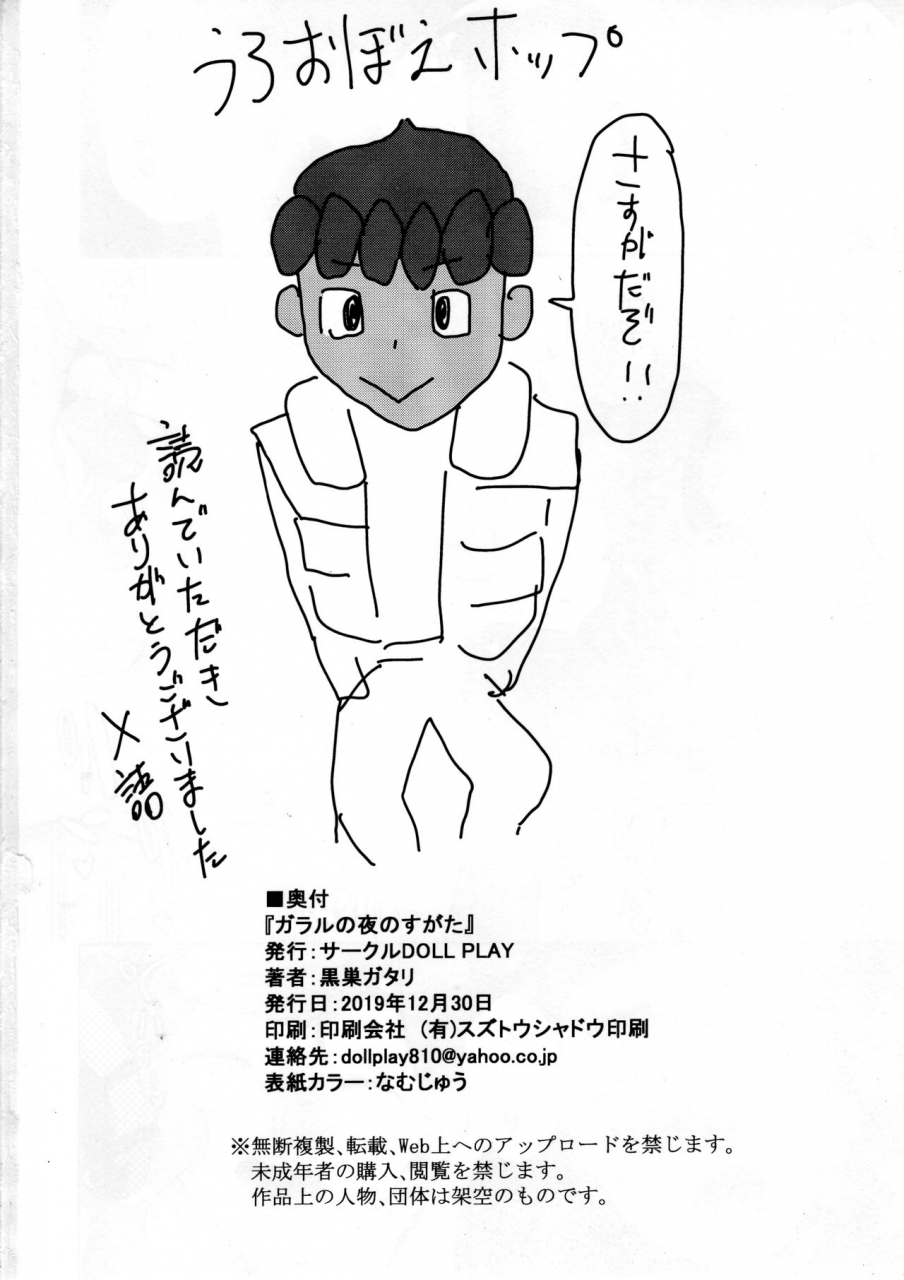 うろおぼえホップ
さすがだぞ!!
読んでいただき
ありがとうございました
■奥付
『ガラルの夜のすがた』
発行：サークルDOLL PLAY
著者：黒巣ガタリ
発行日：2019年12月30日
印刷：印刷会社　(有)スズトウシャドウ印刷
連絡先：dollplay810@yahoo.co.jp
表紙カラー：なむじゅう
※無断複製、転載、Web上へのアップロードを禁じます。
未成年者の購入、閲覧を禁じます。
作品上の人物、団体は架空のものです。